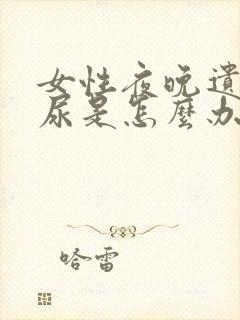 女性夜晚遺
尿是怎麼办
哈雷